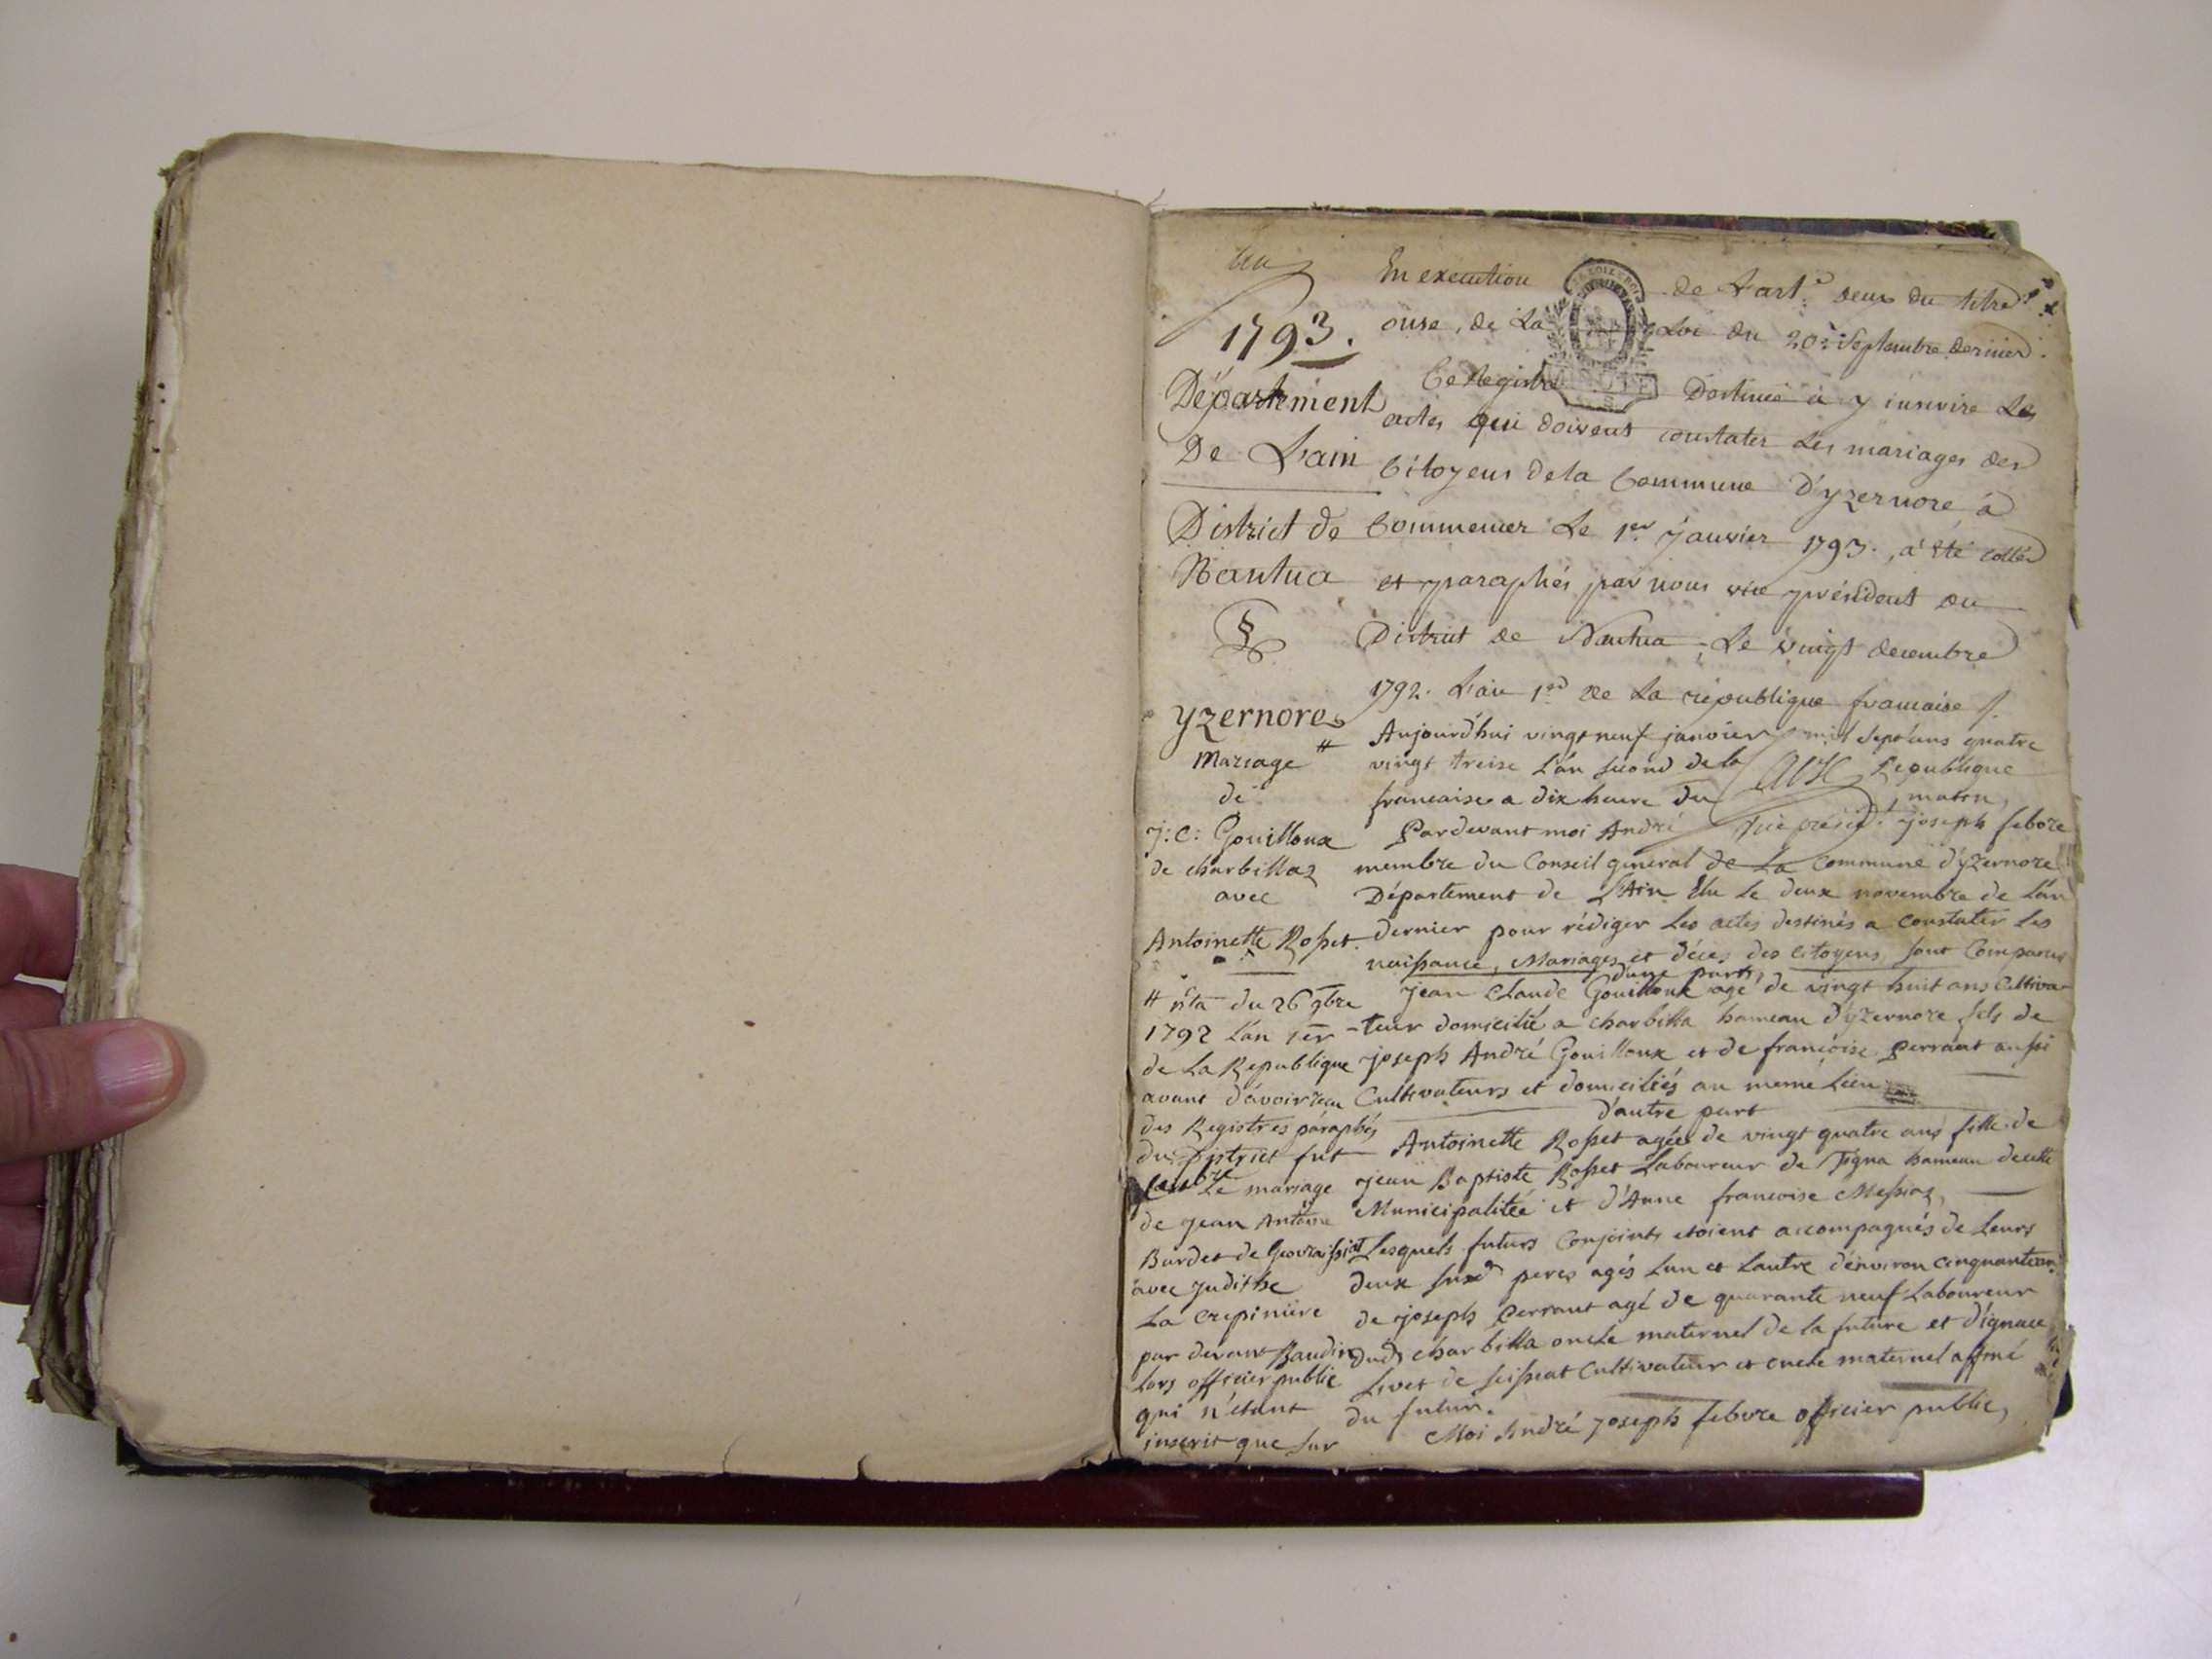 un
1793.
Département
De Lain
District de
Nantua
§
yzernore
Mariage #
de
j: C: Gouilloux
de charbillaz
avec
Antoinette Rosset.
# nta du 26 9bre
1792 L'an 1er
de La Republique
avant d'avoir reçu
des Registres paraphés
du District fut
Le mariage
de jean Antoine
Burdet de Geovraissiat
avec judithe
La crepiniere
par devant Baudin
Lors officier public
qui n'étant
inscrit que sur
En execution de L'art.e deux du titre
onse, de La Loi du 20e Septembre dernier.
Ce Registre Destiné à y inscrire Les
actes qui doivent constater Les mariages des
Citoyens de la Commune D'yzernore à
Commencer Le 1er Janvier 1793., a été collés
et paraphés par nous vice président du
District de Nantua, Le vingt decembre
1792. L'an 1er de La république francaise /.
Aujourd'hui vingt neuf janvier mil sept cens quatre
vingt treise L'an second de la Republique
francaise a dix heure du matin,
vice présid.t
Pardevant moi André joseph febvre
membre du Conseil general de La Commune d'yzernore
Département de L'Ain Elu le deux novembre de L'an
dernier pour rédiger Les actes destinés a constater Les
naissance, Mariages et décès des citoyens sont Comparus
d'une part,
jean Claude Gouilloux agé de vingt huit ans Cultiva-
-teur domicilié a charbilla hameau d'yzernore fils de
joseph André Gouilloux et de francoise perraut aussi
Cultivateurs et domiciliés au meme Lieu
d'autre part
Antoinette Rosset agée de vingt quatre ans fille de
jean Baptiste Rosset Laboureur de Tigna hameau de cette
Municipalité et d'Anne francoise Messiaz,
Lesquels futurs Conjoints etoient accompagnés de Leurs
deux susd peres agés Lun et Lautre d'environ cinquante ans
de joseph perraut agé de quarante neuf Laboureur
dud charbilla oncle maternel de la future et d'ignace
Livet de seissiat Cultivateur et oncle maternel affiné
du futur.
Moi André joseph febvre officier public,